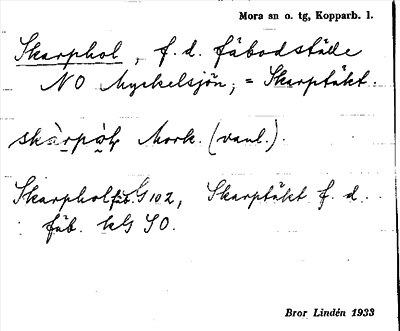 Mora sn o. tg, Kopparb. l.
Skarphol, f. d. fäbodställe
NO Myckelsjön; = Skarptäkt.
skàrpòḷ Mork. (vanl.).
Skarphol fäb. G 102, Skarptäkt f. d.
fäb. kG SO.
Bror Lindén 1933